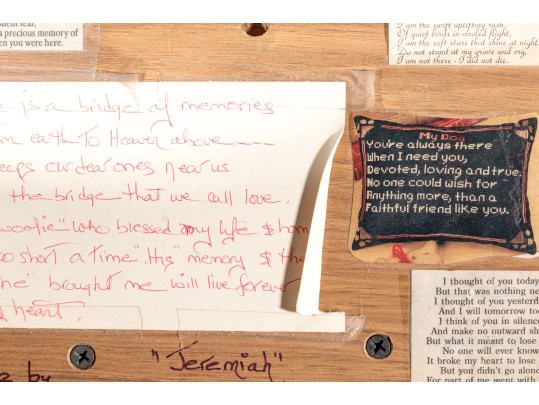 a precious memory of
you were here.
I am the swift uplifting rush,
Of quiet birds in circled flight,
I am the soft stars that shine at night.
Do not stand at my grave and cry,
I am not there - I did not die.
is a bridge of memories
earth To Heaven above----
our dear ones near us
the bridge that we call love.
who blessed my life &
short a time "His" memory &
brought me will live forever
heart.
My Dog
You're always there
When I need you,
Devoted, loving and true.
No one could wish for
Anything more, than a
Faithful friend like you.
I thought of you today
But that was nothing
I thought of you
And I will tomorrow
I think of you in
And make no outward
But what it meant to lose
No one will ever
It broke my heart to lose
But you didn't go
For part of me went with
"Jeremiah"
by